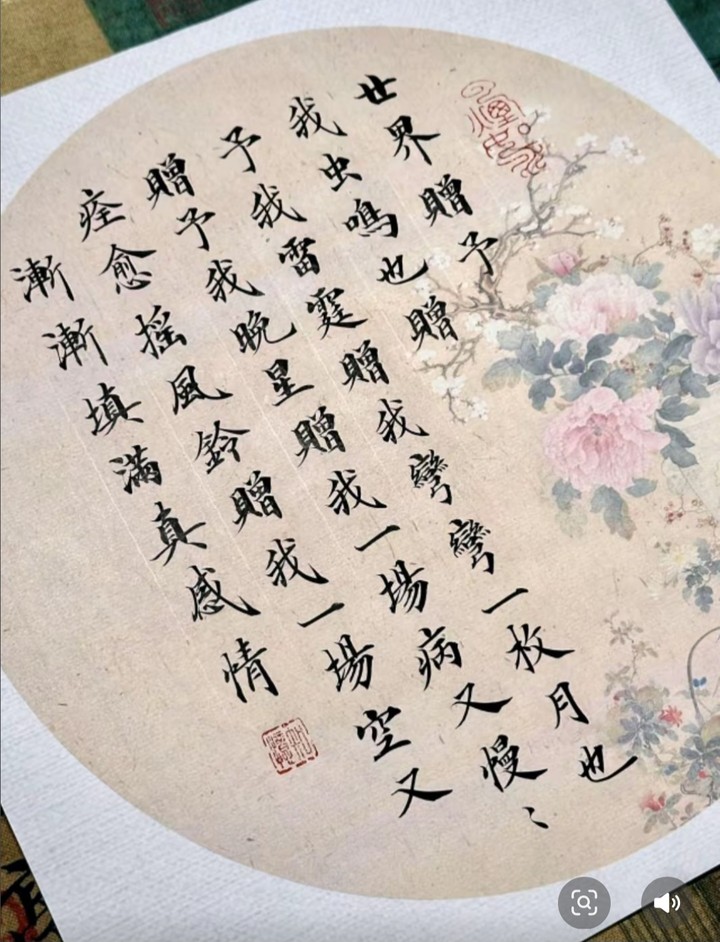 世界贈予
我虫鳴也贈
予我雷霆贈我彎彎一枚月也
贈予我晚星贈我一場病又慢〻
痊愈摇風鈴贈我一場空又
漸漸填滿真感情